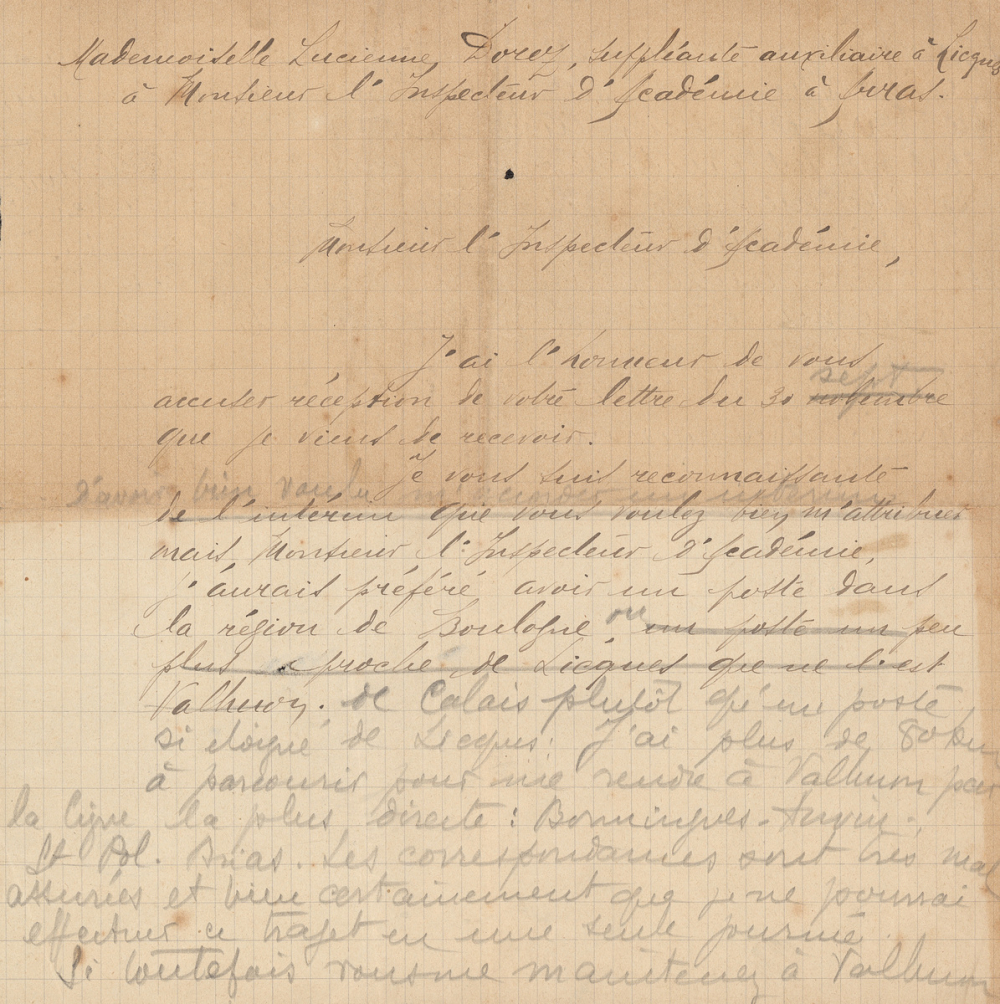 Mademoiselle Lucienne Dorez, suppléante auxiliaire à Licques
à Monsieur l'Inspecteur d'Académie à Arras.
Monsieur l'Inspecteur d'Académie,
J'ai l'honneur de vous
sept
accuser réception de votre lettre du 30 novembre
que je viens de recevoir.
Je vous suis reconnaissante
d'avoir bien voulu m'accorder un intérim
de l'intérim que vous voulez bien m'attribuer
mais, Monsieur l'Inspecteur d'Académie,
j'aurais préféré avoir un poste dans
la région de Boulogne, ou un poste un peu
plus proche de Licques que ne l'est
Valhuon. de Calais plutôt qu'un poste
si éloigné de Licques. J'ai plus de 80 km
à parcourir pour me rendre à Valhuon par
la ligne la plus directe : Bonningues - Anvin -
St Pol. Brias. Les correspondances sont très mal
assurées et bien certainement que je ne pourrai
effectuer ce trajet en une seule journée.
Si toutefois vous me maintenez à Valhuon